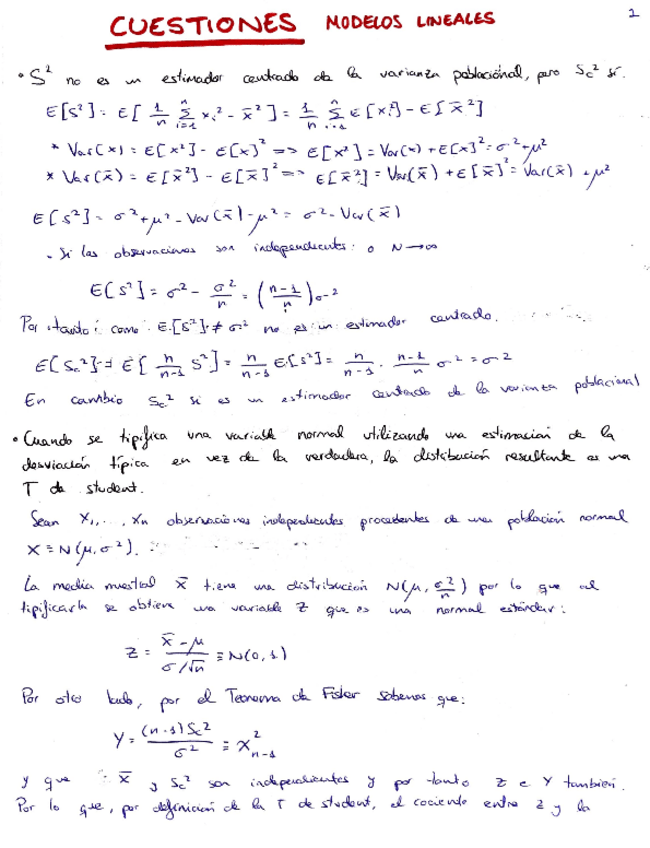 CUESTIONES MODELOS LINEALES 1
• S² no es un estimador centrado de la varianza poblacional, pero Sc² sí.
E[S²] = E[1/n Σ_{i=1}^{n} xi² - x̄²] = 1/n Σ_{i=1}^{n} E[xi²] - E[x̄²]
* Var(x) = E[x²] - E[x]² => E[x²] = Var(x) + E[x]² = σ² + μ²
* Var(x̄) = E[x̄²] - E[x̄]² => E[x̄²] = Var(x̄) + E[x̄]² = Var(x̄) + μ²
E[S²] = σ² + μ² - Var(x̄) - μ² = σ² - Var(x̄)
- Si las observaciones son independientes: o N → ∞
E[S²] = σ² - σ²/n = ((n-1)/n) σ²
Por tanto: como E[S²] ≠ σ² no es un estimador centrado.
E[Sc²] = E[n/(n-1) S²] = n/(n-1) E[S²] = n/(n-1) · (n-1)/n σ² = σ²
En cambio Sc² si es un estimador centrado de la varianza poblacional
• Cuando se tipifica una variable normal utilizando una estimación de la
desviación típica en vez de la verdadera, la distribución resultante es una
T de student.
Sean X1, ..., Xn observaciones independientes procedentes de una población normal
X ≡ N(μ, σ²).
La media muestral x̄ tiene una distribución N(μ, σ²/n) por lo que al
tipificarla se obtiene una variable Z que es una normal estándar:
Z = (x̄ - μ)/(σ/√n) ≡ N(0,1)
Por otro lado, por el Teorema de Fisher sabemos que:
Y = (n-1)Sc²/σ² ≡ X²_{n-1}
y que x̄ y Sc² son independientes y por tanto Z e Y también.
Por lo que, por definición de la T de student, el cociente entre Z y la